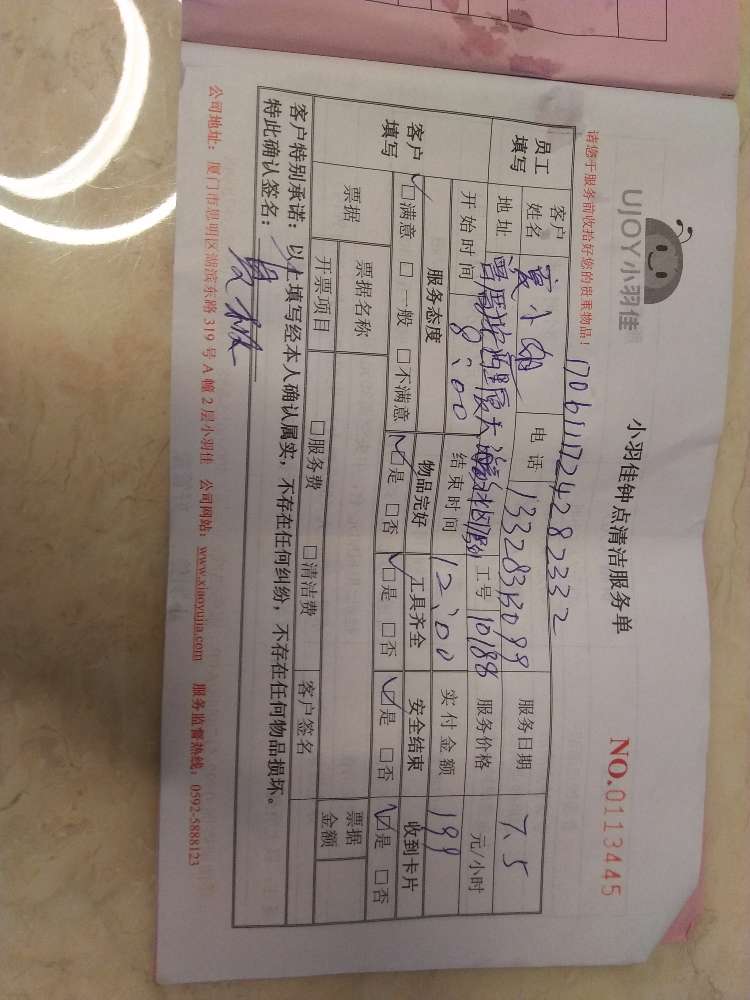 UJOY小羽佳
小羽佳钟点清洁服务单
NO.0113445
请您于服务前收拾好您的贵重物品！
员工填写 客户姓名 电话 服务日期 7.5
地址 工号 10188 服务价格 元/小时
开始时间 8:00 结束时间 12:00 实付金额 199
客户填写 服务态度 物品完好 工具齐全 安全结束 收到卡片
☑满意 □一般 □不满意 ☑是 □否 ☑是 □否 ☑是 □否 ☑是 □否
票据 票据名称 客户签名 票据金额
开票项目 □服务费 □清洁费
客户特别承诺：以上填写经本人确认属实，不存在任何纠纷，不存在任何物品损坏。
特此确认签名：
公司地址：厦门市思明区湖滨东路319号A幢2层小羽佳 公司网站：www.xiaoyujia.com 服务监督热线：0592-5888123